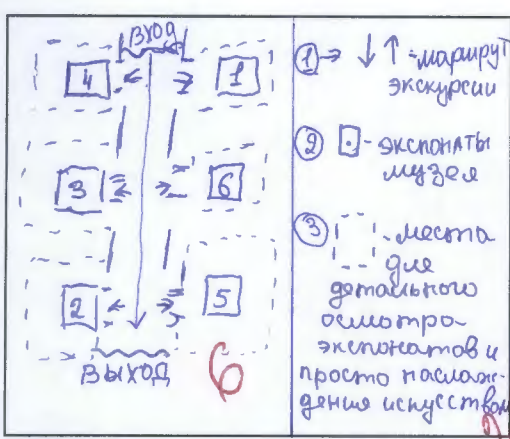 ВХОД
4 1
3 6
2 5
ВЫХОД
6
① → ↓ ↑ - маршрут
экскурсии
② - экспонаты
музея
③ - места
для
детального
осмотра
экспонатов и
просто наслаж-
дения искусством